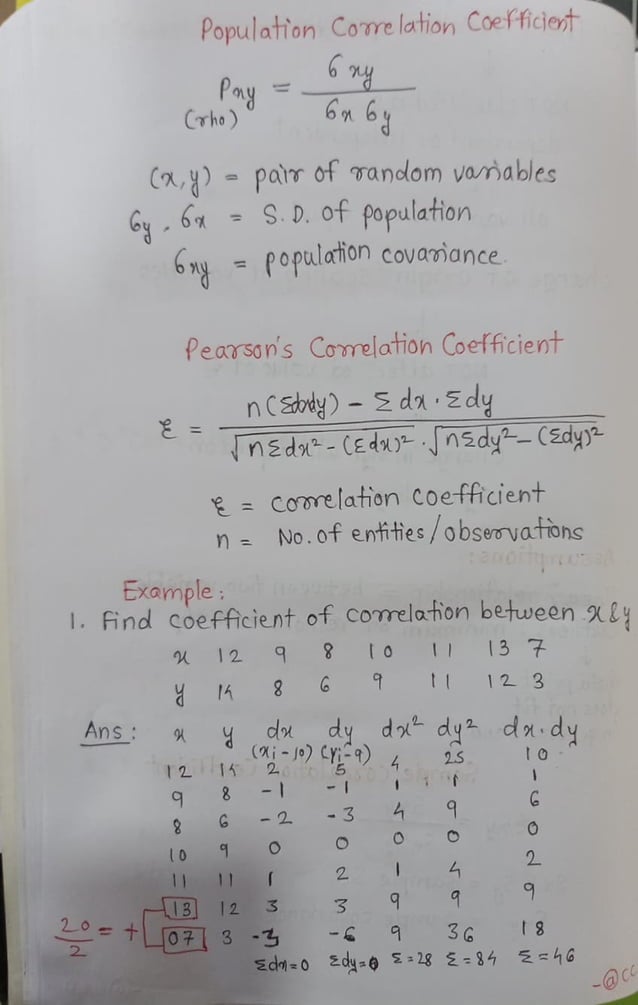 Population Correlation Coefficient
ρxy = σxy / σx σy
(rho)
(x,y) = pair of random variables
σy, σx = S.D. of population
σxy = population covariance.
Pearson's Correlation Coefficient
r = n(Σdxdy) - Σdx·Σdy / √nΣdx² - (Σdx)² · √nΣdy² - (Σdy)²
r = correlation coefficient
n = No. of entities/observations
Example:
1. Find coefficient of correlation between x & y
x 12 9 8 10 11 13 7
y 14 8 6 9 11 12 3
Ans: x y dx dy dx² dy² dx.dy
(xi-10) (yi-9)
12 14 2 5 4 25 10
9 8 -1 -1 1 1 1
8 6 -2 -3 4 9 6
10 9 0 0 0 0 0
11 11 1 2 1 4 2
13 12 3 3 9 9 9
20/2 = + 07 3 -3 -6 9 36 18
Σdx=0 Σdy=0 Σ=28 Σ=84 Σ=46
-@CC